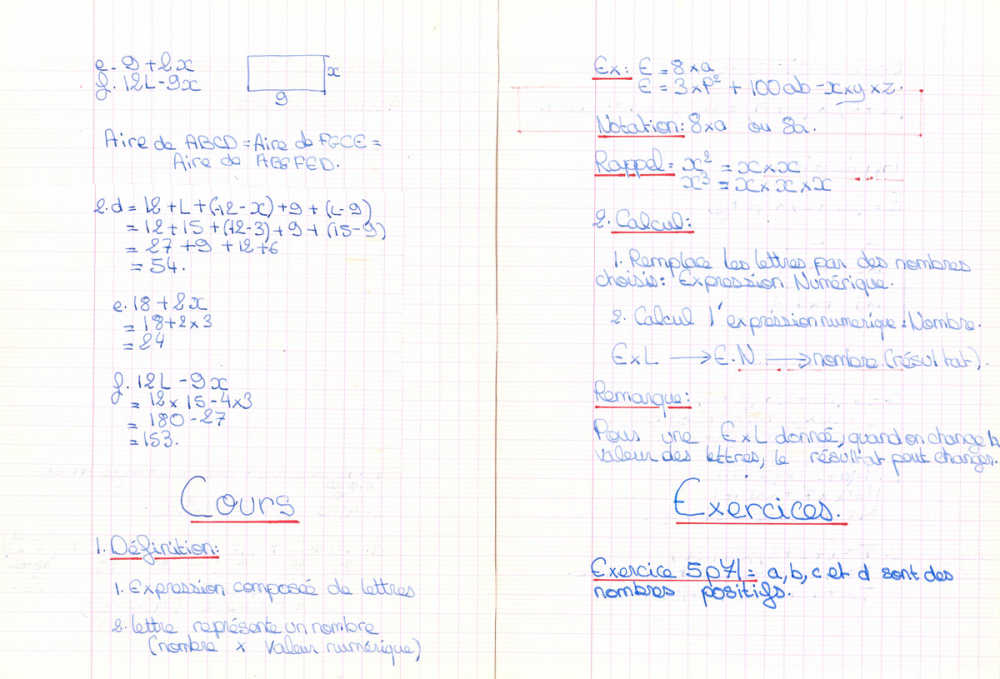 e. 9 + 2x
f. 12L - 9x
x
9
Aire de ABCD = Aire de FGCE =
Aire de ABGFED.
2. d = 12 + L + (12 - x) + 9 + (L - 9)
= 12 + 15 + (12 - 3) + 9 + (15 - 9)
= 27 + 9 + 12 + 6
= 54.
e. 18 + 2x
= 18 + 2 x 3
= 24
f. 12L - 9x
= 12 x 15 - 4 x 3
= 180 - 27
= 153.
Cours
1. Définition:
1. Expression composée de lettres
2. lettre représente un nombre
(nombre x valeur numérique)
Ex: E = 8 x a
E = 3 x p² + 100ab - x x y x z.
Notation: 8 x a ou 8a.
Rappel: x² = x x x
x³ = x x x x x
2. Calcul:
1. Remplace les lettres par des nombres
choisis: Expression Numérique.
2. Calcul l'expression numérique: Nombre.
ExL → E.N → nombre (résultat).
Remarque:
Pour une ExL donnée, quand on change la
valeur des lettres, le résultat peut changer.
Exercices.
Exercice 5p71: a, b, c et d sont des
nombres positifs.